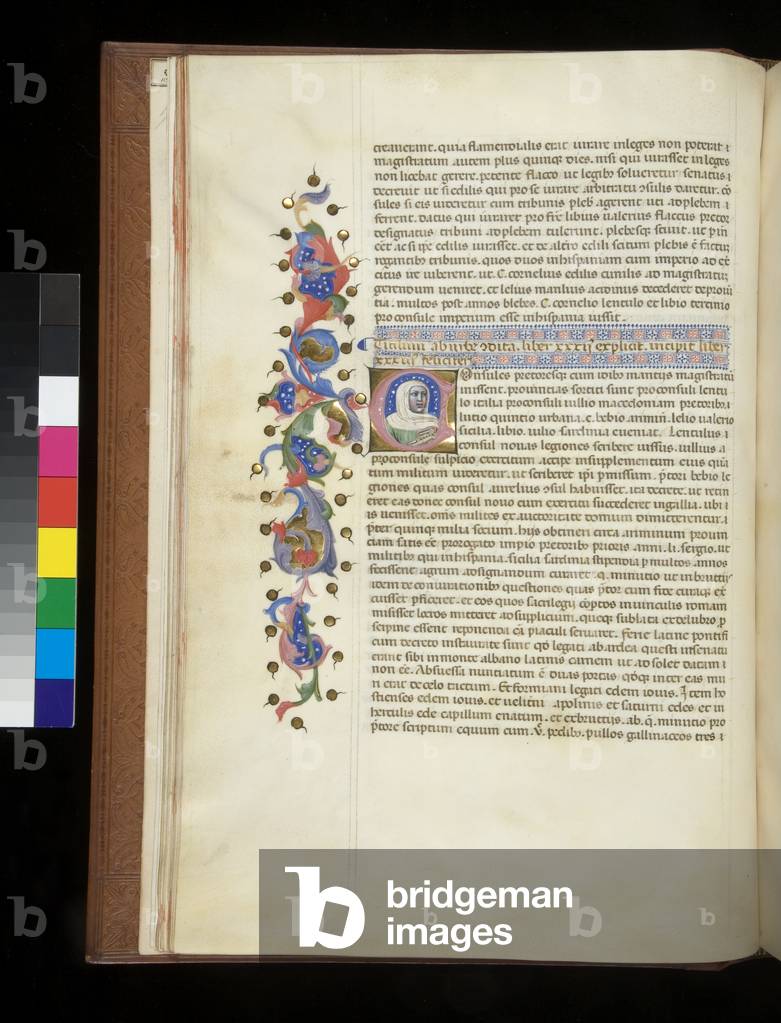 creauerant. quia flamen dialis erat iurare in leges non poterat ⁊
magistratum autem plus quinq; dies. nisi qui iurasset in leges
non licebat gerere. petente flacco ut legibꝫ solueretur senatus
decreuit ut si edilis qui pro se iurare arbitratu ꝯsulis daretur. cō
sules si eis uideretur cum tribunis pleb agerent uti ad plebem
ferrent. datus qui iuraret pro fr̄e libius ualerius flaccus pretor
designatus tribuni ad plebem tulerunt. plebesq; sciuit. ut
ac si ipe edilis iurasset. et de altero edili scitum plebis ē factū
rogantibꝫ tribunis. quos duos in hispaniam cum imperio ad
citus ire iuberent. ut. C. cornelius edilis curulis ad magistratū
gerendum ueniret. et lelius manlius acidinus decederet de prouī
tia. multos post annos plebes. C. cornelio lentulo et libio tercinio
pro consule imperium esse in hispania iussit.
Titiliuii ab urbe ꝯdita. liber xxxi explicit. incipit liber
xxxii feliciter
Consules pretoresq; cum idibꝫ martijs magistratū
inissent. prouintias sortiti sunt pro consuli lentu
lo italia pro consuli iullio macedoniam pretoribꝫ
lucio quintio urbana. c. bebio arimin̄. lelio ualerio
sicilia. libio. iulio sardinia eueniat. Lentulus
consul nouas legiones scribere iussus. uillius a
proconsule sulpicio exercitum accipe in supplementum eius quā
tum militum uideretur. ut scriberet ipi pmissum. p̄tori bebio le
giones quas consul aurelius ꝯsul habuisset. ita decrete. ut retin
eret eas donec consul nouo cum exercitu succederet in gallia. ubi
is uenisset. om̄s milites ex auctoritate domum dimitterentur.
p̄ter quinq; milia socium. hijs obtineri circa ariminum prouin
ciam satis eē prorogato impio pretoribꝫ prioris anni. li. sergio. ut
militibꝫ qui in hispania. sicilia sardinia stipendia p multos annos
fecissent agrum adsignandum curaret. q. minutio ut in bruttijs
idem de coniurationibꝫ questiones quas p̄tor cum fide curaq;
cuisset pficeret. et eos quos sacrilegij cōptos in uinculis romam
misisset locros mitteret ad supplicium. queq; sublata ex delubro p
serpine essent reponenda cū piaculi seruaret. ferie latine pontifi
cum decreto instaurate sunt qd legati ab ardea questi in senatu
erant sibi in monte albano latinis carnem ut adsolet datam
non eē. Ab suessa nuntiatum ē duas portas qdq; inter eas mu
ri erat de celo tactum. Et formiani legati edem iouis. Item ho
stienses edem iouis. et ueliterni apolinis et saturni edes et in
herculis ede capillum enatum. et ex bruttijs. ab. q. minutio pro
p̄tore scriptum equum cum. V. pedibꝫ. pullos gallinaceos tres
b
bridgeman
images